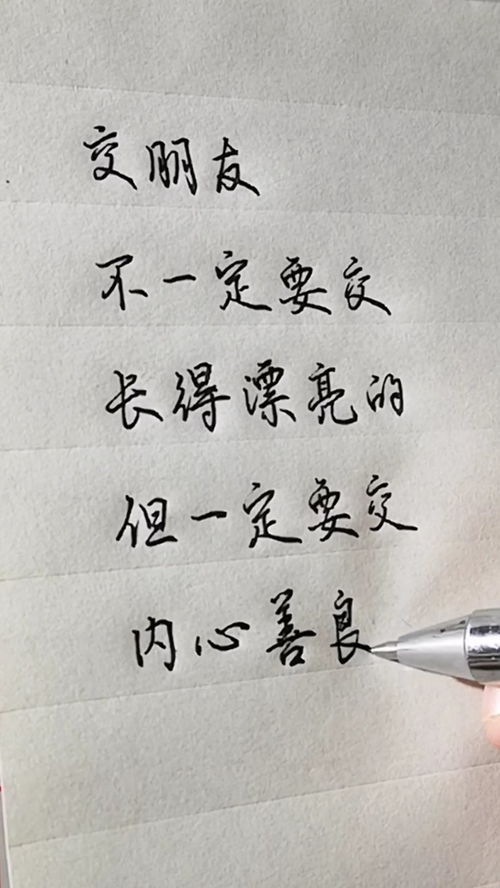 交朋友
不一定要交
长得漂亮的
但一定要交
内心善良